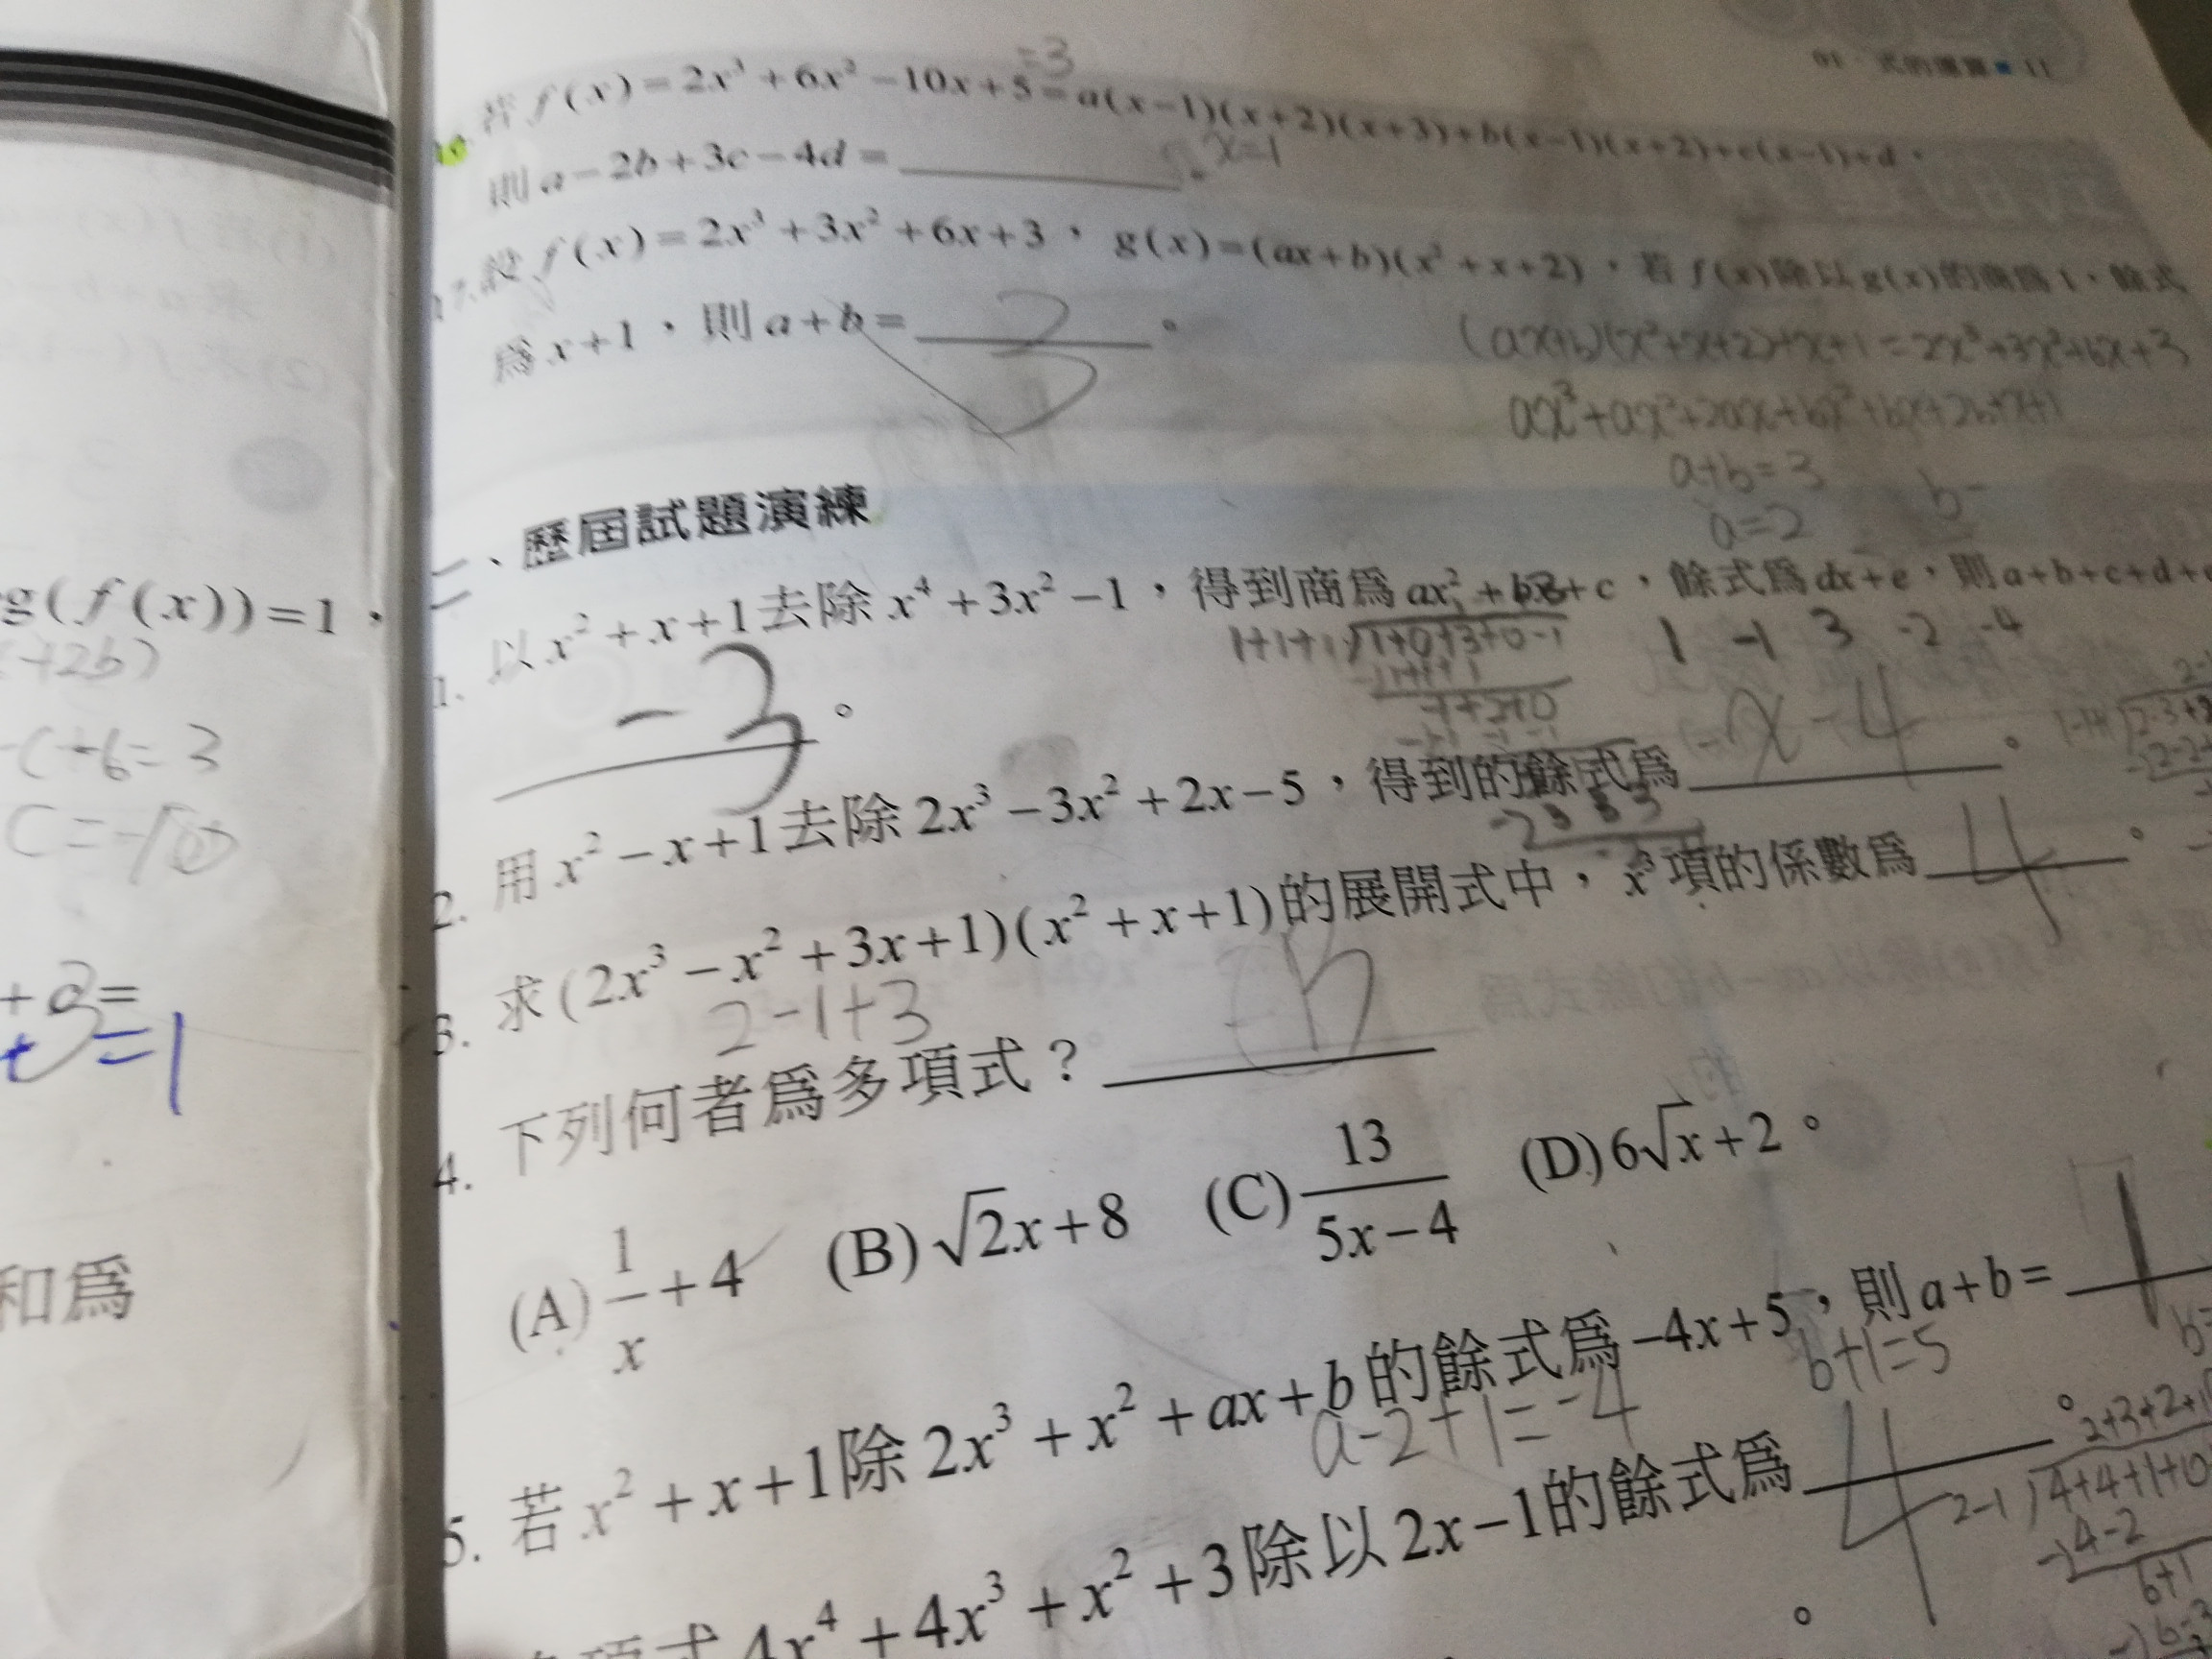 g(f(x))=1，
+2b)
-c+6=3
+3=
=1
和為
=3
若 f(x)=2x³+6x²-10x+5=a(x-1)(x+2)(x+3)+b(x-1)(x+2)+c(x-1)+d，
則 a-2b+3c-4d=
x=1
17. 設 f(x)=2x³+3x²+6x+3，g(x)=(ax+b)(x²+x+2)，若 f(x)除以g(x)的商為1，餘式
為 x+1，則 a+b= 3 。
(ax+b)(x²+x+2)+x+1=2x³+3x²+6x+3
ax³+ax²+2ax+bx²+bx+2b+x+1
a+b=3
a=2
二、歷屆試題演練
1. 以 x²+x+1去除 x⁴+3x²-1，得到商為 ax²+bx+c，餘式為 dx+e，則 a+b+c+d+e
1+1+1 1+0+3+0-1
1 -1 3 -2 -4
-3 。
-1+2+0
2. 用 x²-x+1去除 2x³-3x²+2x-5，得到的餘式為 -x-4 。
3. 求 (2x³-x²+3x+1)(x²+x+1)的展開式中，x³項的係數為 4 。
2-1+3
4. 下列何者為多項式？ B
(A) 1/x +4 (B) √2x+8 (C) 13/(5x-4) (D) 6√x+2。
5. 若 x²+x+1除 2x³+x²+ax+b的餘式為 -4x+5，則 a+b= 1
a-2+1=-4
b+1=5
項式 4x⁴+4x³+x²+3除以 2x-1的餘式為 4 。
2+3+2+1
2-1 4+4+1+0
4-2
6+1